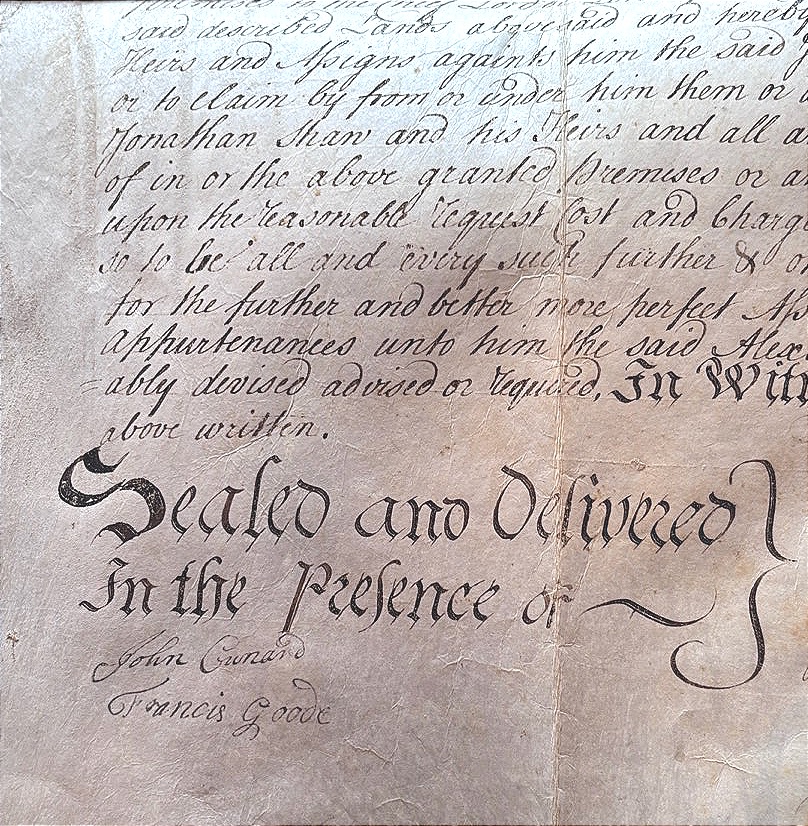 premises in the
said described Lands abovesaid and hereby
Heirs and Aſsigns againts him the said
or to Claim by from or under him them or
Jonathan Shaw and his Heirs and all
of in or the above granted Premises or
upon the reasonable request Cost and Charg
so to be all and every such further & o
for the further and better more perfect Aſs
appurtenances unto him the said Alex
ably devised advised or required. In Witn
above written.
Sealed and Delivered
In the Preſence of
John Cunard
Francis Goode